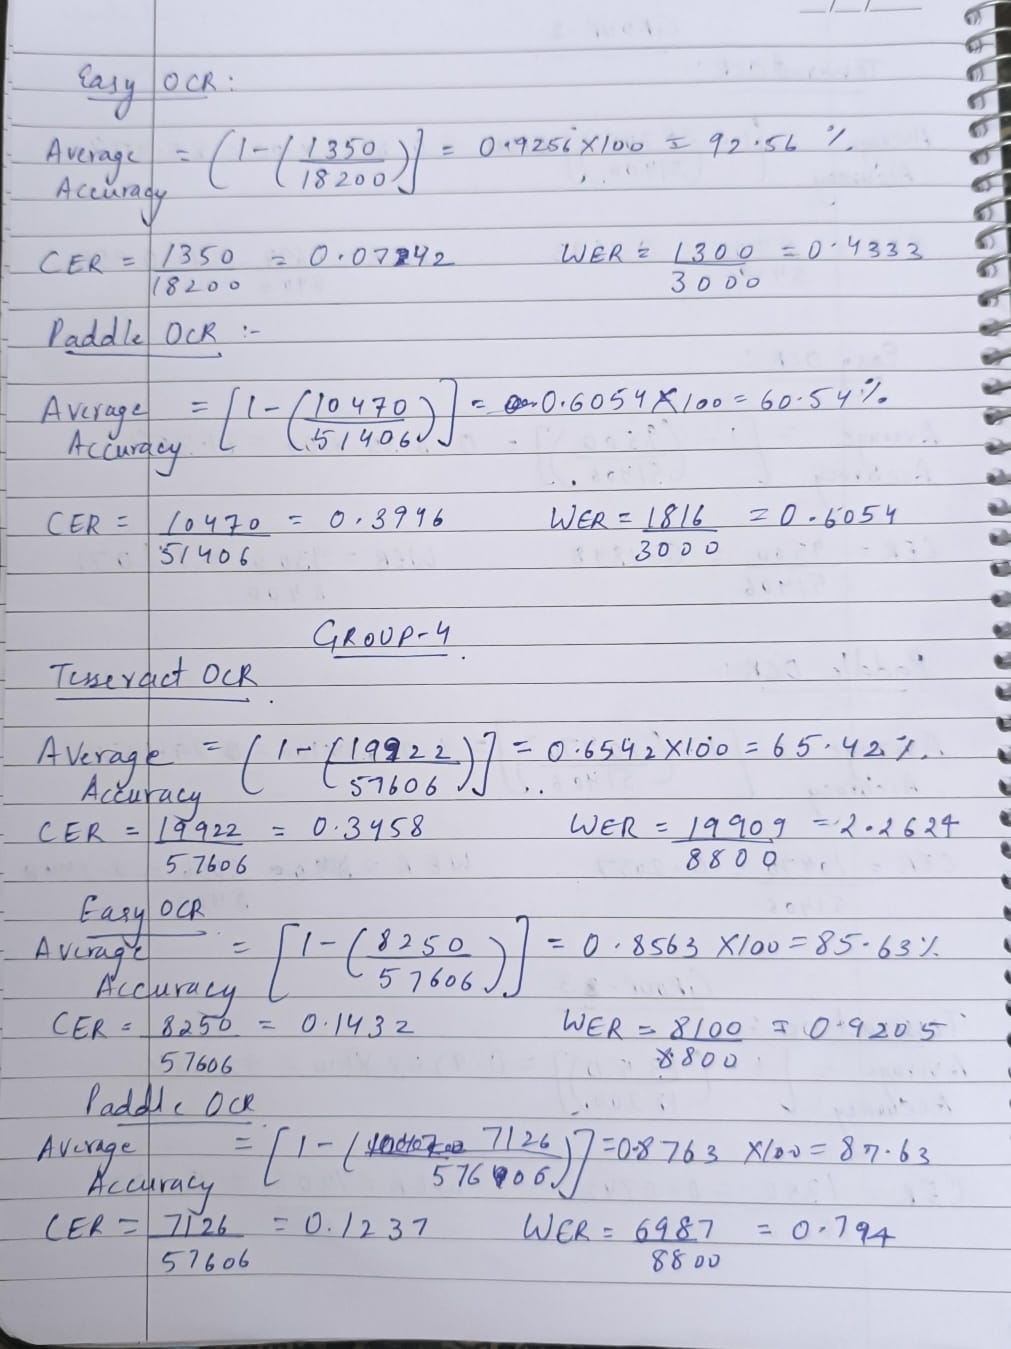 Easy OCR:
Average Accuracy = [1-(1350/18200)] = 0.9256 X100 = 92.56 %.
CER = 1350/18200 = 0.07242 WER = 1300/3000 = 0.4333
Paddle OCR :-
Average Accuracy = [1-(10470/51406)] = 0.6054 X 100 = 60.54%
CER = 10470/51406 = 0.3946 WER = 1816/3000 = 0.6054
GROUP-4
Tesseract OCR
Average Accuracy = [1-(19922/57606)] = 0.6542 X100 = 65.42%.
CER = 19922/57606 = 0.3458 WER = 19909/8800 = 2.2624
Easy OCR
Average Accuracy = [1-(8250/57606)] = 0.8563 X100 = 85.63%
CER = 8250/57606 = 0.1432 WER = 8100/8800 = 0.9205
Paddle OCR
Average Accuracy = [1-(7126/57606)] = 0.8763 X100 = 87.63
CER = 7126/57606 = 0.1237 WER = 6987/8800 = 0.794